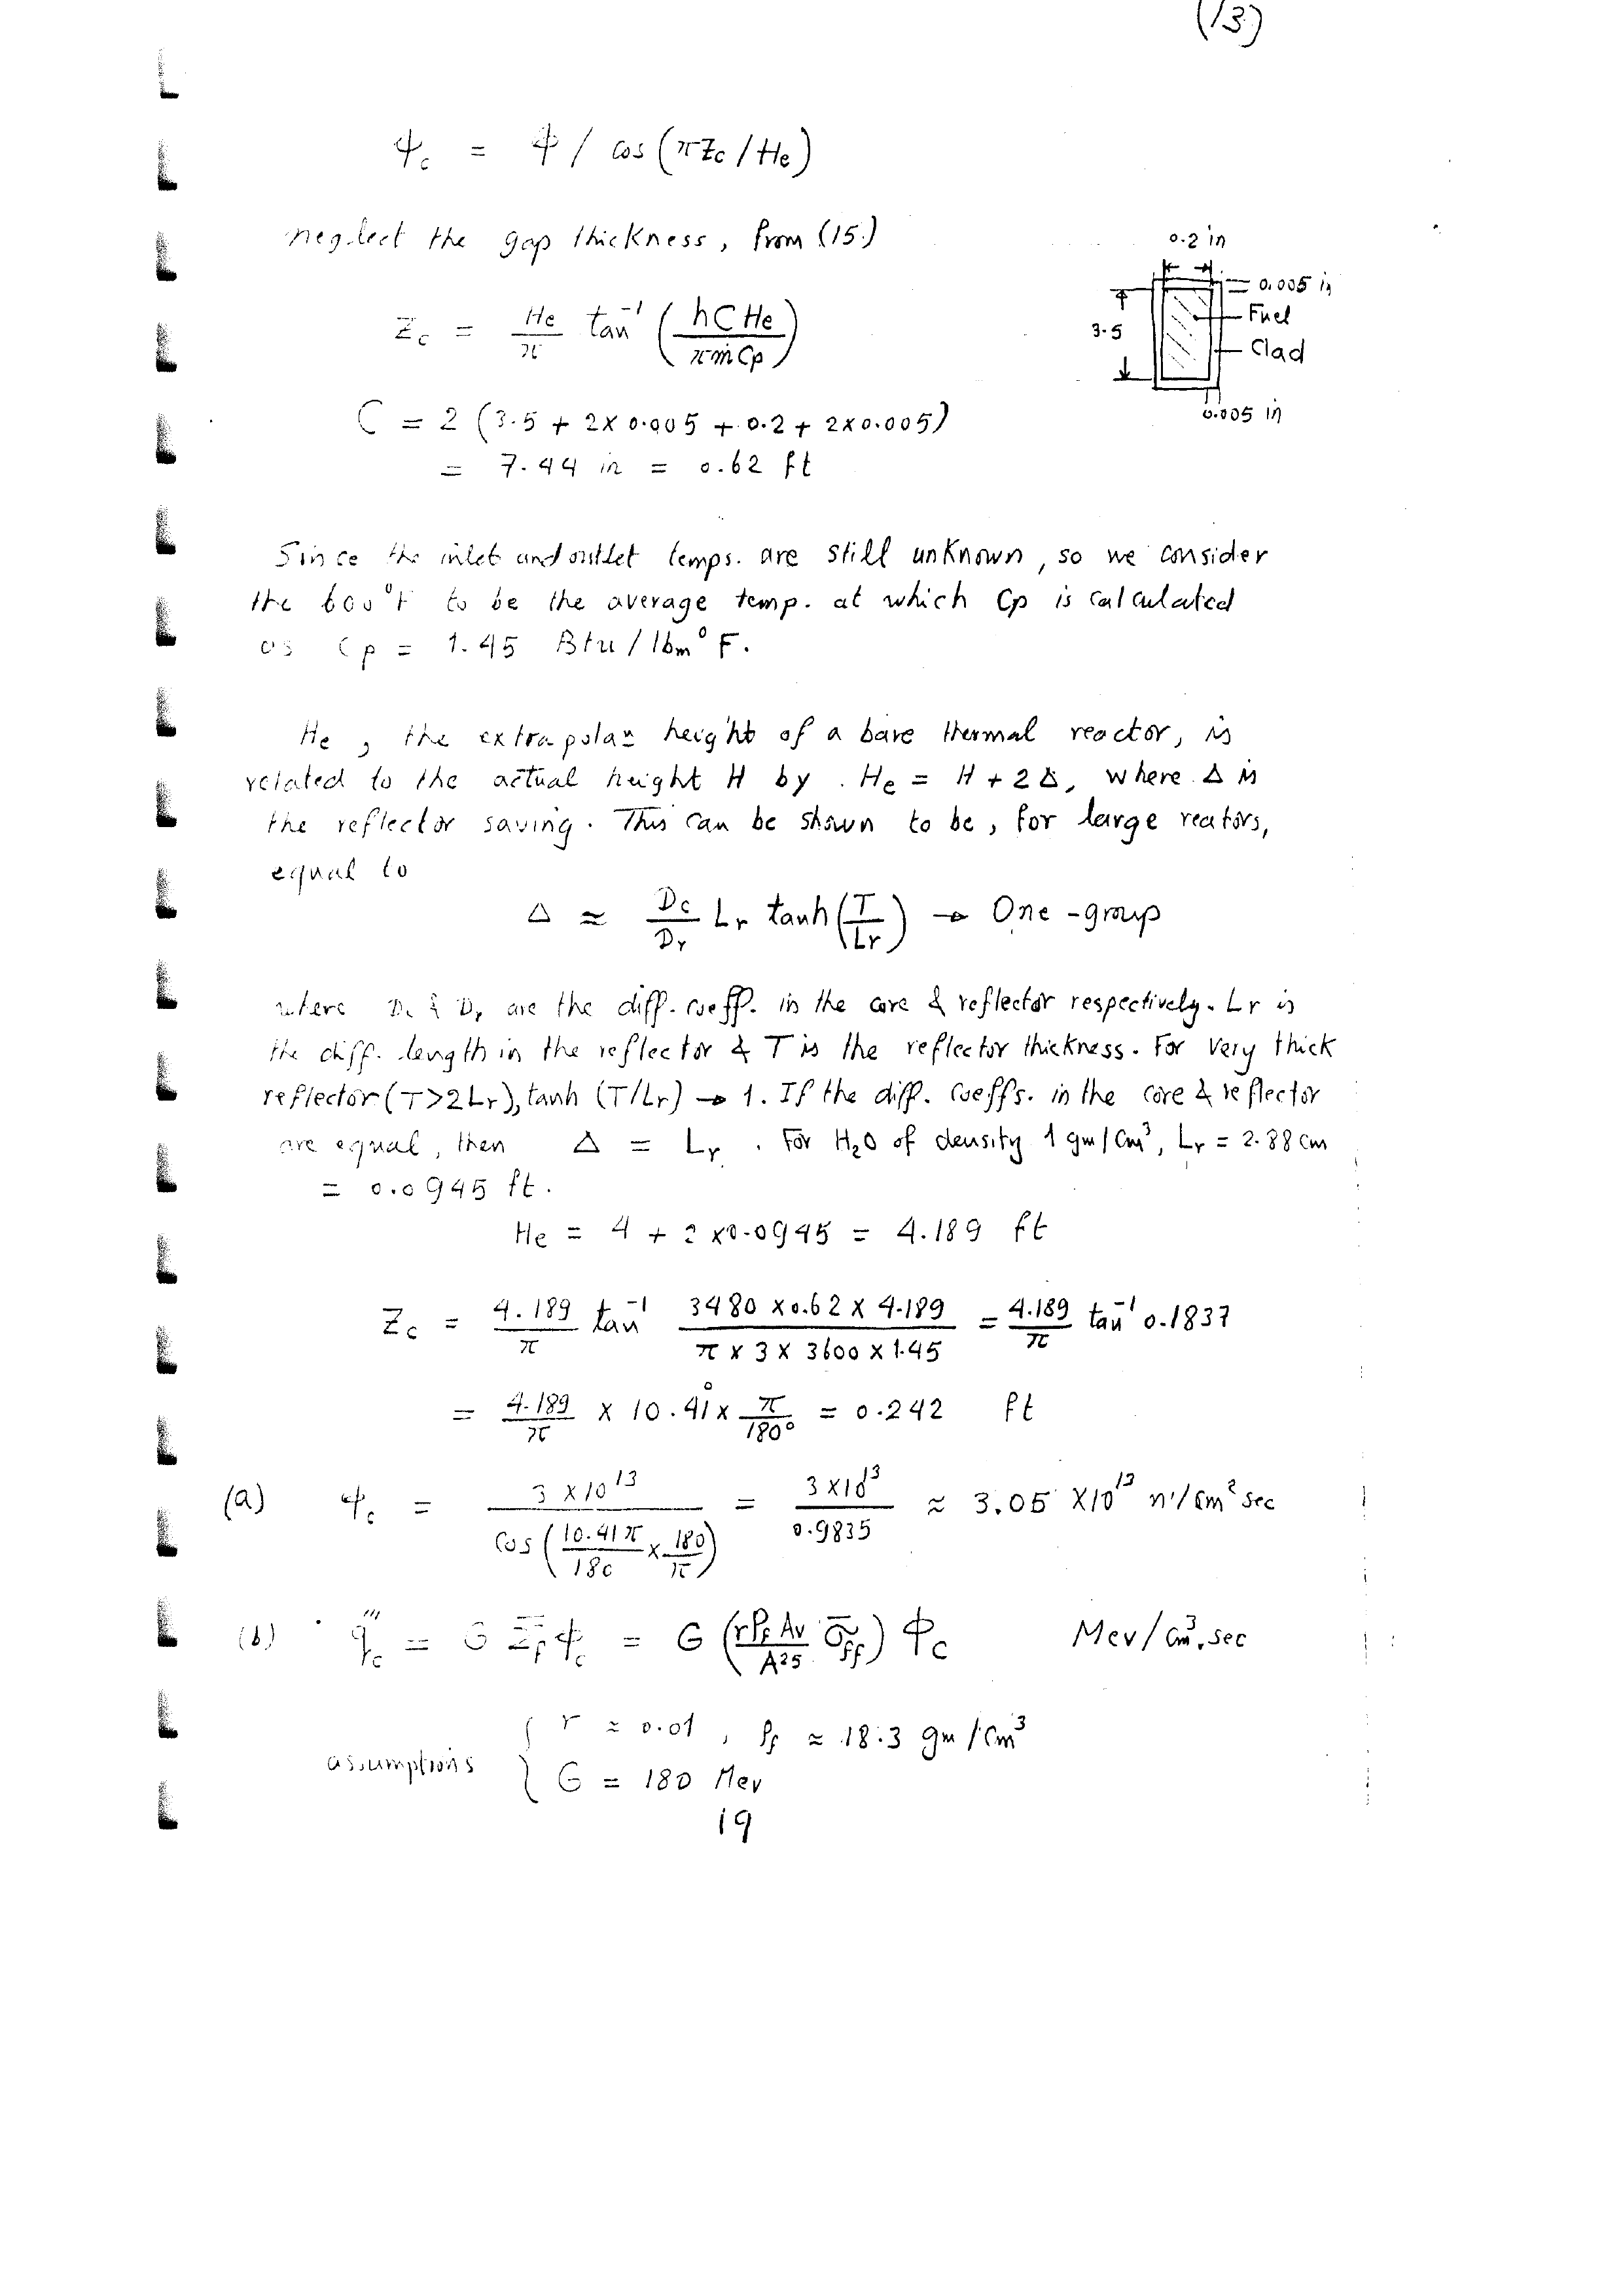 (13)
φc = φ / cos (πZc / He)
neglect the gap thickness, from (15)
0.2 in
0.005 in
Fuel
3.5
Clad
0.005 in
Zc = He/π tan⁻¹ (hCHe / πṁCp)
C = 2 (3.5 + 2x0.005 + 0.2 + 2x0.005)
= 7.44 in = 0.62 ft
Since the inlet and outlet temps. are still unknown, so we consider
the 600°F to be the average temp. at which Cp is calculated
as Cp = 1.45 Btu/lbm°F.
He, the extrapolan height of a bare thermal reactor, is
related to the actual height H by He = H + 2Δ, where Δ is
the reflector saving. This can be shown to be, for large reators,
equal to
Δ ≈ Dc/Dr Lr tanh (T/Lr) → One-group
where Dc & Dr are the diff. coeff. in the core & reflector respectively. Lr is
the diff. length in the reflector & T is the reflector thickness. For very thick
reflector (T>2Lr), tanh (T/Lr) → 1. If the diff. Coeffs. in the core & reflector
are equal, then Δ = Lr. For H₂O of density 1 gm/cm³, Lr = 2.88 cm
= 0.0945 ft.
He = 4 + 2x0.0945 = 4.189 ft
Zc = 4.189/π tan⁻¹ (3480 x 0.62 x 4.189)/(π x 3 x 3600 x 1.45) = 4.189/π tan⁻¹ 0.1837
= 4.189/π x 10.41° x π/180° = 0.242 ft
(a) φc = 3 x10¹³ / cos (10.41π/180 x 180/π) = 3x10¹³ / 0.9835 ≈ 3.05 x10¹³ n/cm² sec
(b) q'''c = G Σ̄f φc = G (rρf Av / A²⁵ σ̄ff) φc Mev/cm³.sec
assumptions { r ≈ 0.01, ρf ≈ 18.3 gm/cm³
G = 180 Mev
19